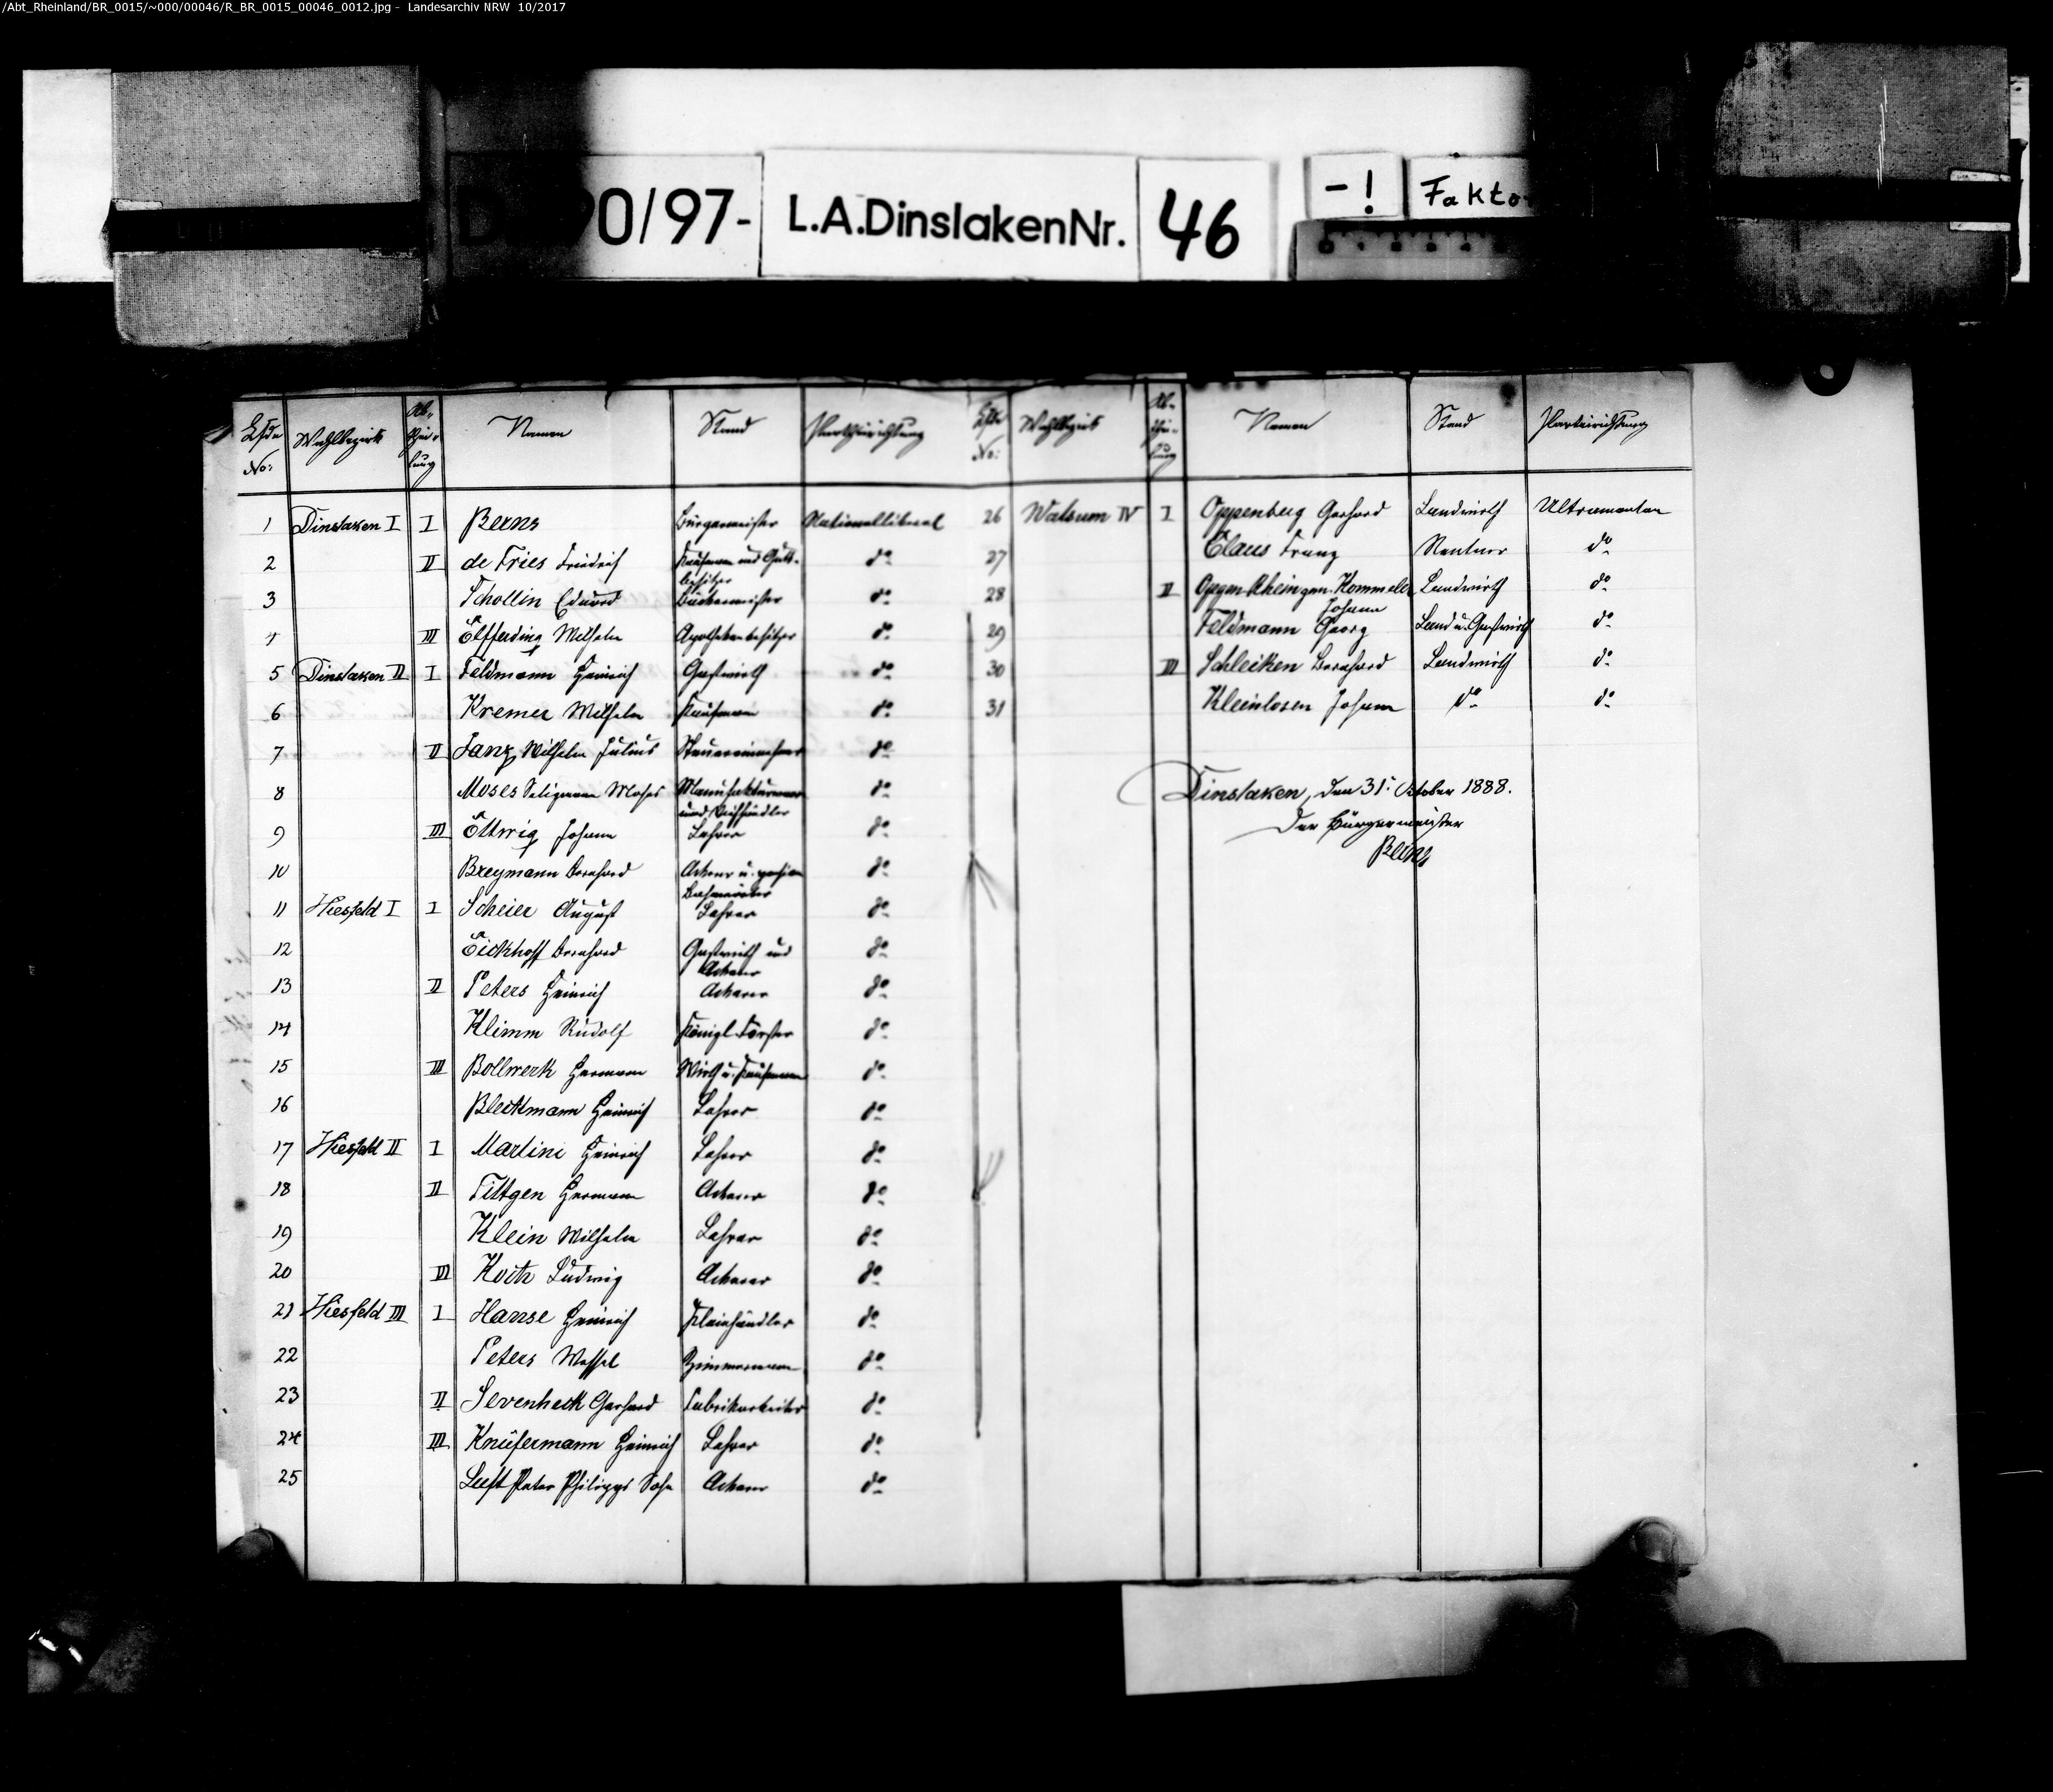 /Abt_Rheinland/BR_0015/~000/00046/R_BR_0015_00046_0012.jpg - Landesarchiv NRW 10/2017
90/97- L.A.Dinslaken Nr. 46 -! Fakto
Lfde No: Wahlbezirk Ab- thei- lung Namen Stand Parteirichtung
1 Dinslaken I I Berns Bürgermeister Nationalliberal
2 II de Fries Friedrich Kaufmann und Guts- besitzer do
3 Schollin Eduard Bäckermeister do
4 III Elfferding Wilhelm Apothekenbesitzer do
5 Dinslaken II I Feldmann Heinrich Gastwirth do
6 Kremer Wilhelm Kaufmann do
7 II Lanz Wilhelm Julius Steuereinnehmer do
8 Moses Seligmann Moses und Viehhändler do
9 III Ettwig Johann Lehrer do
10 Breymann Bernhard Ackerer u. do
11 Hiesfeld I I Scheier August Lehrer do
12 Eickhoff Bernhard Gastwirth und Ackerer do
13 II Peters Heinrich Ackerer do
14 Klimm Rudolf Königl. Förster do
15 III Bollwerk Hermann Wirth u. Kaufmann do
16 Bleckmann Heinrich Lehrer do
17 Hiesfeld II I Martini Heinrich Lehrer do
18 II Tittgen Hermann Ackerer do
19 Klein Wilhelm Lehrer do
20 III Ludwig Ackerer do
21 Hiesfeld III I Hanse Heinrich Kleinhändler do
22 Peters Wessel Zimmermann do
23 II Sevenheck Gerhard Fabrikarbeiter do
24 III Knüfermann Heinrich Lehrer do
25 Luft Peter Philipps Sohn Ackerer do
Lfde No: Wahlbezirk Ab- thei- lung Namen Stand Parteirichtung
26 Walsum IV I Oppenberg Gerhard Landwirth Ultramontan
27 Claus Franz Rentner do
28 II Johann Landwirth do
29 Feldmann Georg Land u. Gastwirth do
30 III Schleiken Bernhard Landwirth do
31 Kleinlosen Johann do do
Dinslaken, den 31. Oktober 1888.
Der Bürgermeister
Berns